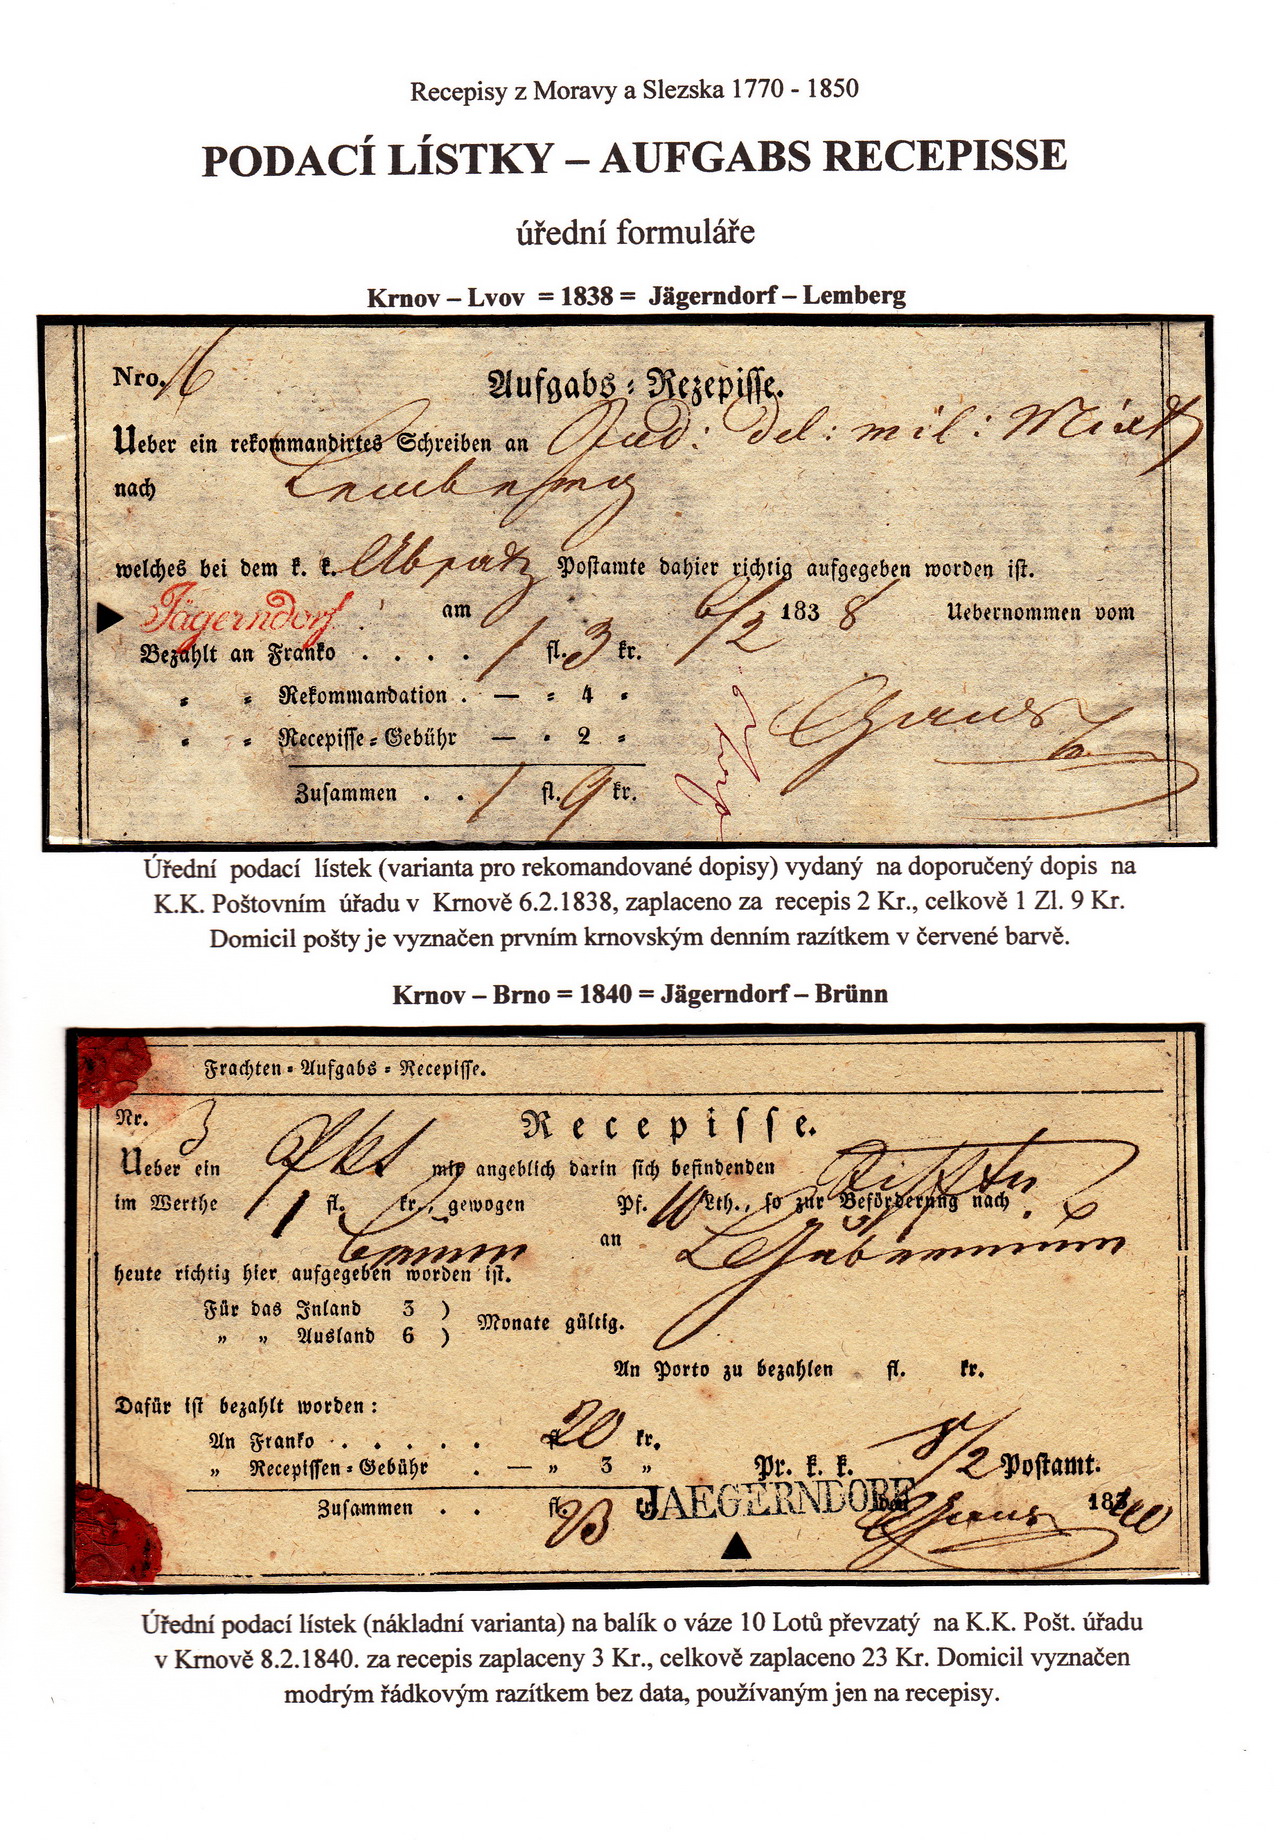 Recepisy z Moravy a Slezska 1770 - 1850
PODACÍ LÍSTKY – AUFGABS RECEPISSE
úřední formuláře
Krnov – Lvov = 1838 = Jägerndorf – Lemberg
Nro. 16
Aufgabs-Rezepisse.
Ueber ein rekommandirtes Schreiben an Jud: del: mil:
nach Lemberg
welches bei dem k. k. Absatz Postamte dahier richtig aufgegeben worden ist.
Jägerndorf. am 6/2 1838 Uebernommen vom
Bezahlt an Franko . . . . 1 fl. 3 kr.
" " Rekommandation . — " 4 "
" " Recepisse-Gebühr — " 2 "
Zusammen . . 1 fl. 9 kr.
Úřední podací lístek (varianta pro rekomandované dopisy) vydaný na doporučený dopis na
K.K. Poštovním úřadu v Krnově 6.2.1838, zaplaceno za recepis 2 Kr., celkově 1 Zl. 9 Kr.
Domicil pošty je vyznačen prvním krnovským denním razítkem v červené barvě.
Krnov – Brno = 1840 = Jägerndorf – Brünn
Frachten-Aufgabs-Recepisse.
Nr. 3
Recepisse.
Ueber ein mit angeblich darin sich befindenden
im Werthe 1 fl. kr., gewogen Pf. 10 Lth., so zur Beförderung nach
Brünn an Gubernium
heute richtig hier aufgegeben worden ist.
Für das Inland 3 )
" " Ausland 6 ) Monate gültig.
An Porto zu bezahlen fl. kr.
Dafür ist bezahlt worden:
An Franko . . . . . fl. 20 kr.
" Recepissen-Gebühr . — " 3 "
Pr. k. k. 8/2 Postamt.
Zusammen . . fl. 23 kr. JAEGERNDORF 1840
Úřední podací lístek (nákladní varianta) na balík o váze 10 Lotů převzatý na K.K. Pošt. úřadu
v Krnově 8.2.1840. za recepis zaplaceny 3 Kr., celkově zaplaceno 23 Kr. Domicil vyznačen
modrým řádkovým razítkem bez data, používaným jen na recepisy.